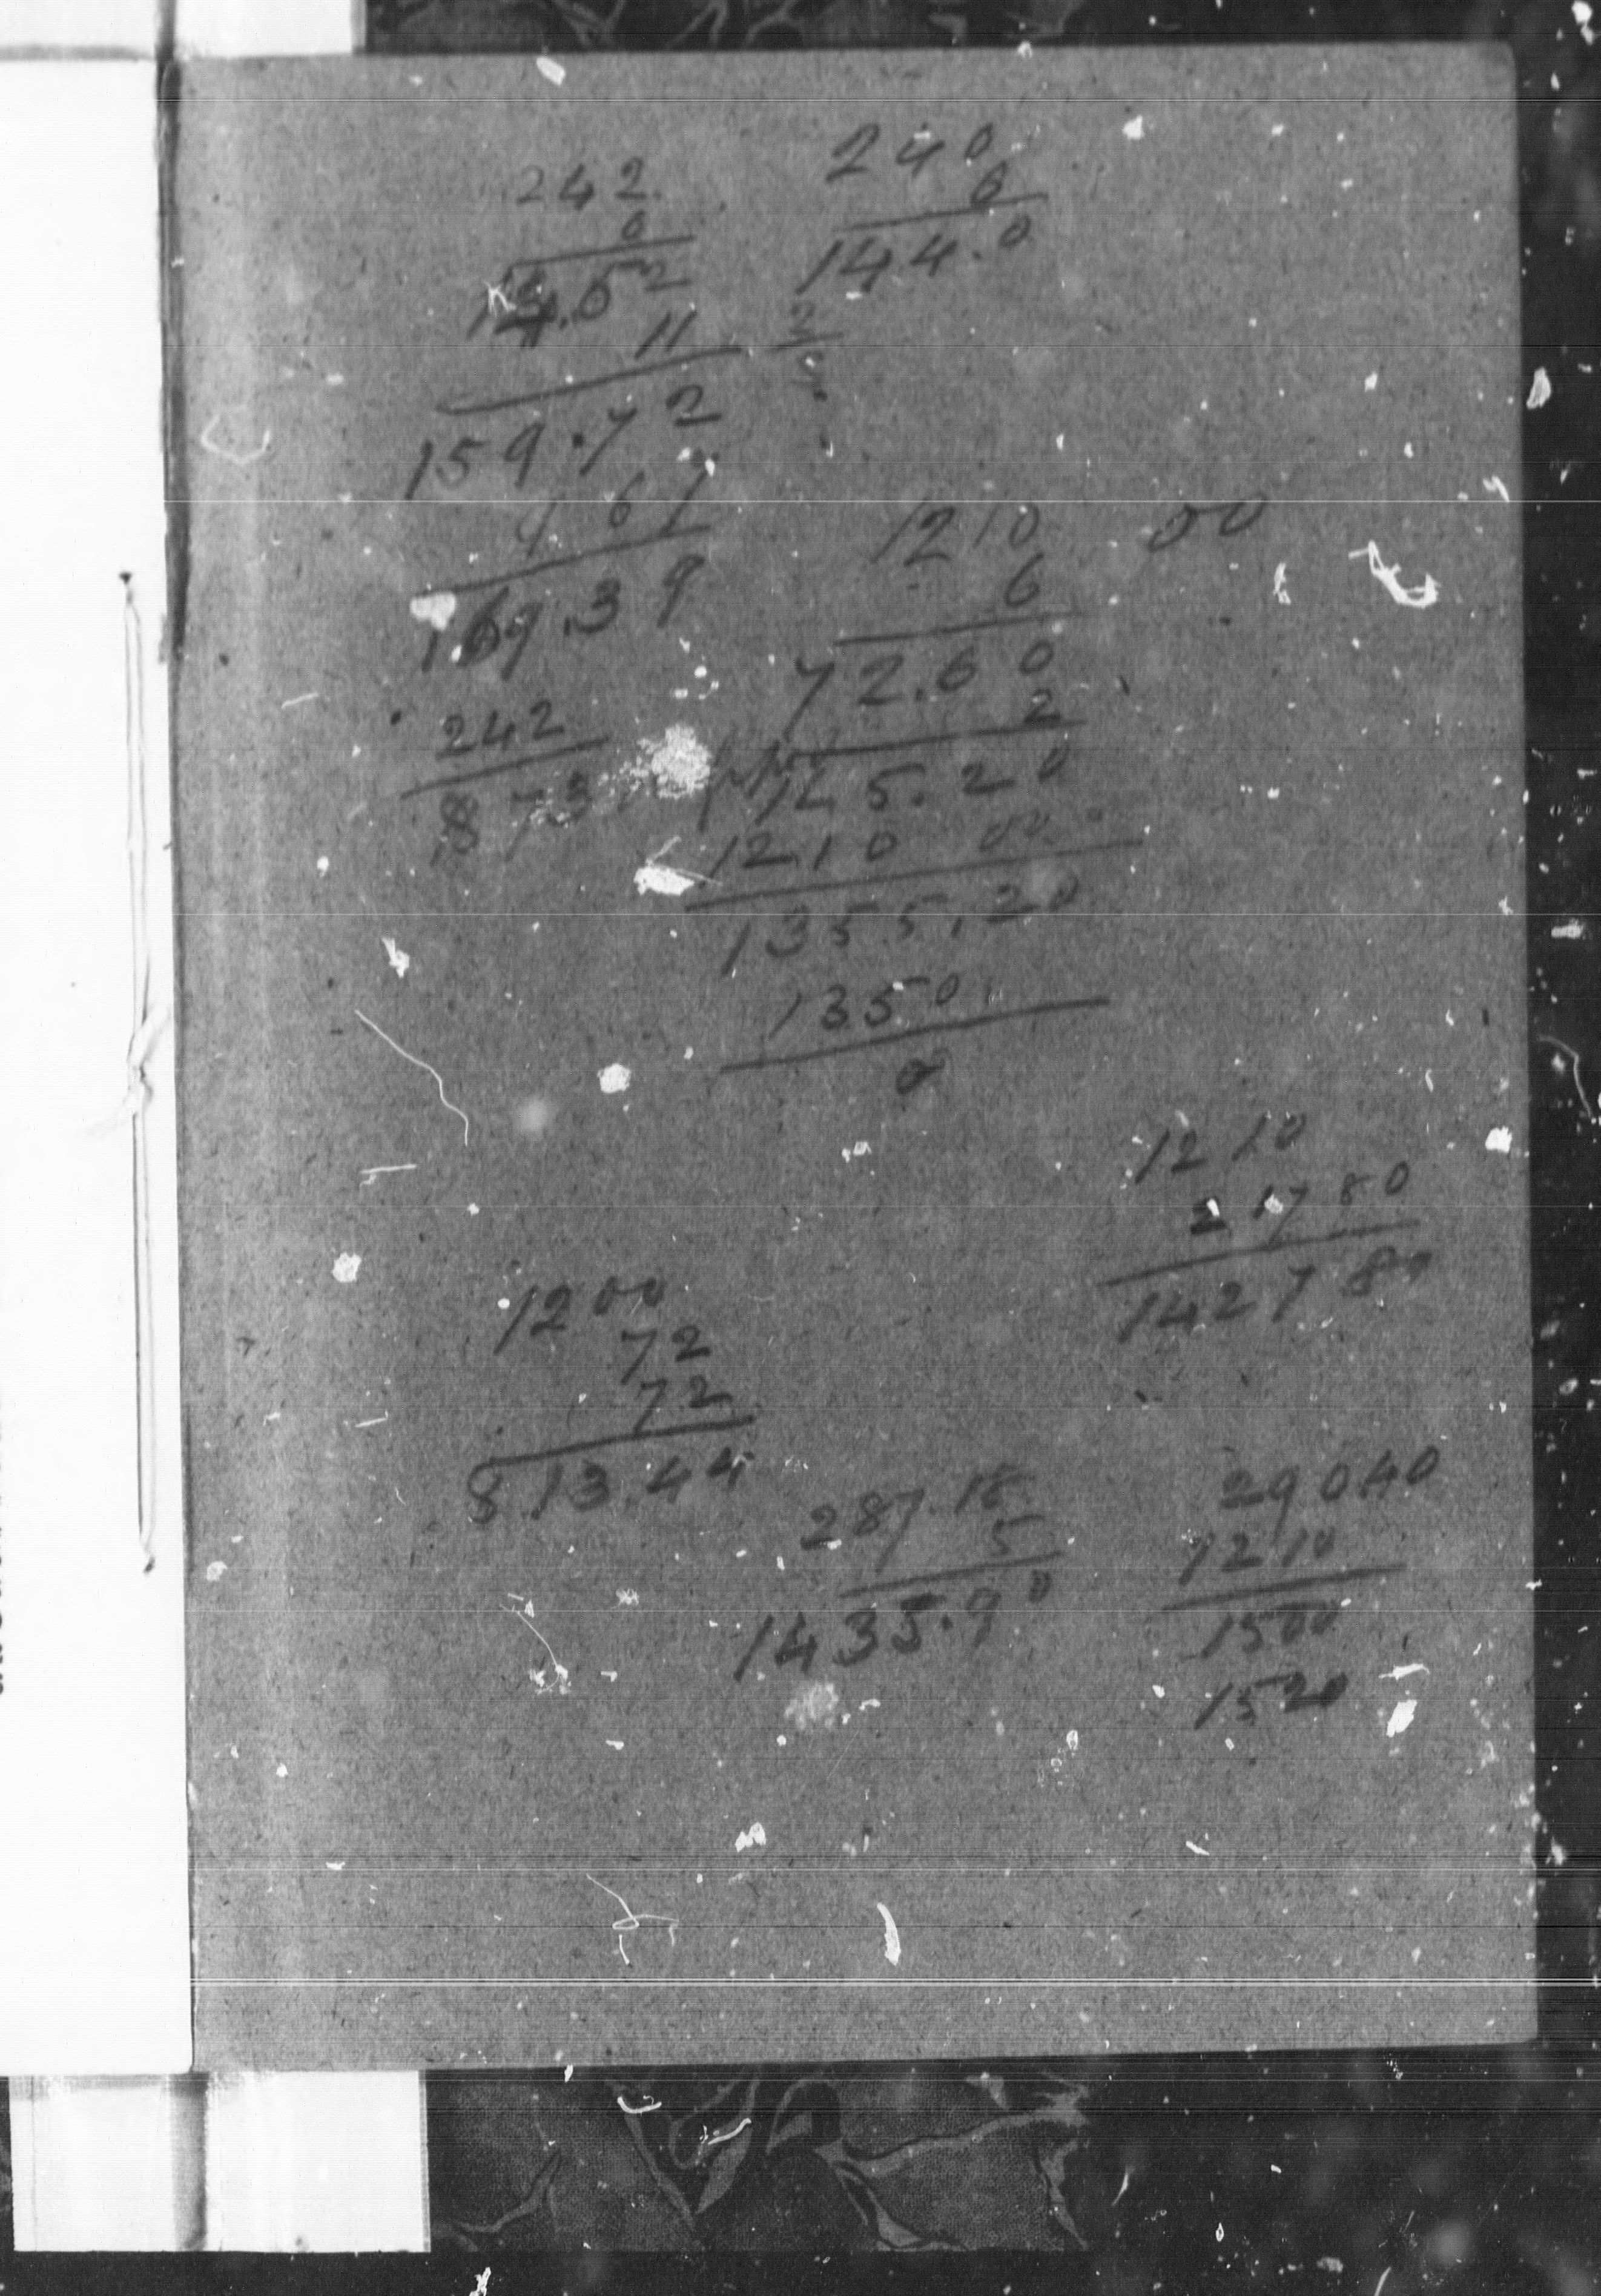 242
6
14.52
11
159.72
9 67
169.39
242
873
240
6
144.0
2
1210 00
6
72.60
2
145.20
1210 00
1355.20
1350
0
1210
217 80
1427 80
1200
72
72
813.44
287.18
5
1435.90
290.40
1210
1500
1520